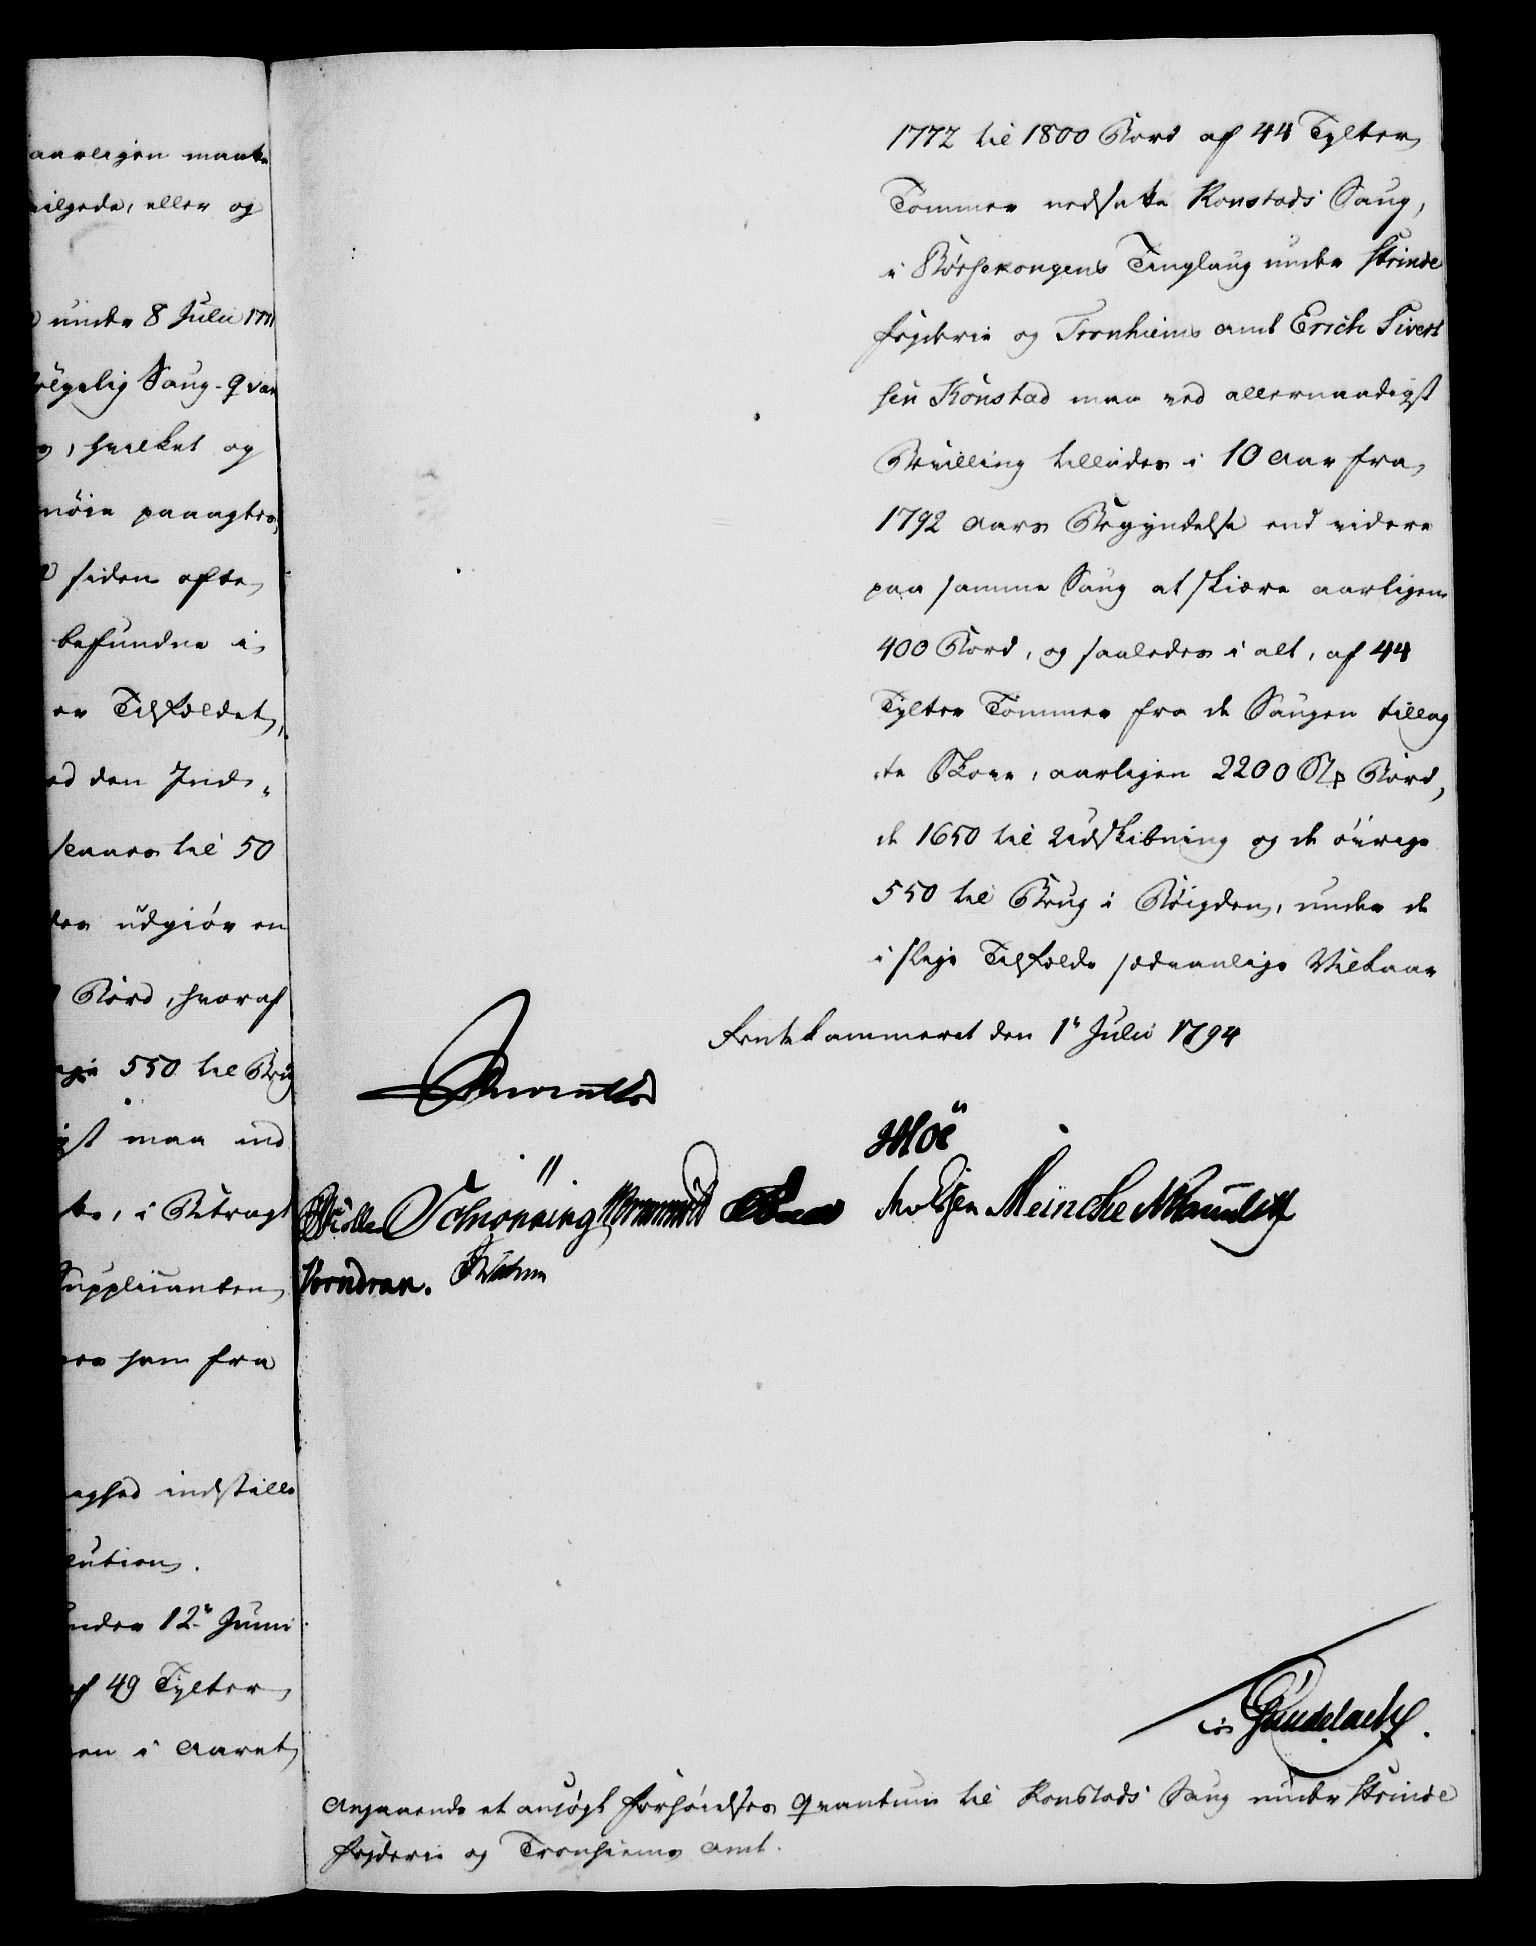 aarligen maatte
tilgode, eller og
under 8 Julii 177
følgelig Saug-Qvan
, hvilket og
nöie paaagtes,
siden efter
befundne i
er Tilfældet,
ed den Ind-
senares til 50
der udgiör en
Bord, hvoraf
550 til Brug
gst maa ind
te, i Betragt
Supplicanten
ham fra
aghed indstille
lution.
under 12te Junii
af 49 Tylter
en i Aaret
1772 til 1800 Bord af 44 Tylter
Tömmer nedsatte Konstads Saug,
i Börsekongens Tinglaug under Strinde
Fogderie og Tronhiems Amt Erich Sivert
sen Konstad maa ved allernaadigst
Bevilling tillades i 10 Aar fra
1792 Aars Begyndelse end videre
paa samme Saug at skiære aarligen
400 Bord, og saaledes i alt, af 44
Tylter Tömmer fra de Saugen tillag
te Skove, aarligen 2200 Stk Bord,
de 1650 til Udskibning og de övrige
550 til Brug i Böigden, under de
i slige Tilfælde sædvanlige Vilkaar
Rentekammeret den 1te Julii 1794
Hoë
Schönning
Meincke
Vorndran.
Gundelach.
Angaaende et ansögt forhöielses Qvantum til Konstads Saug under Strinde
Fogderie og Tronhiems Amt.